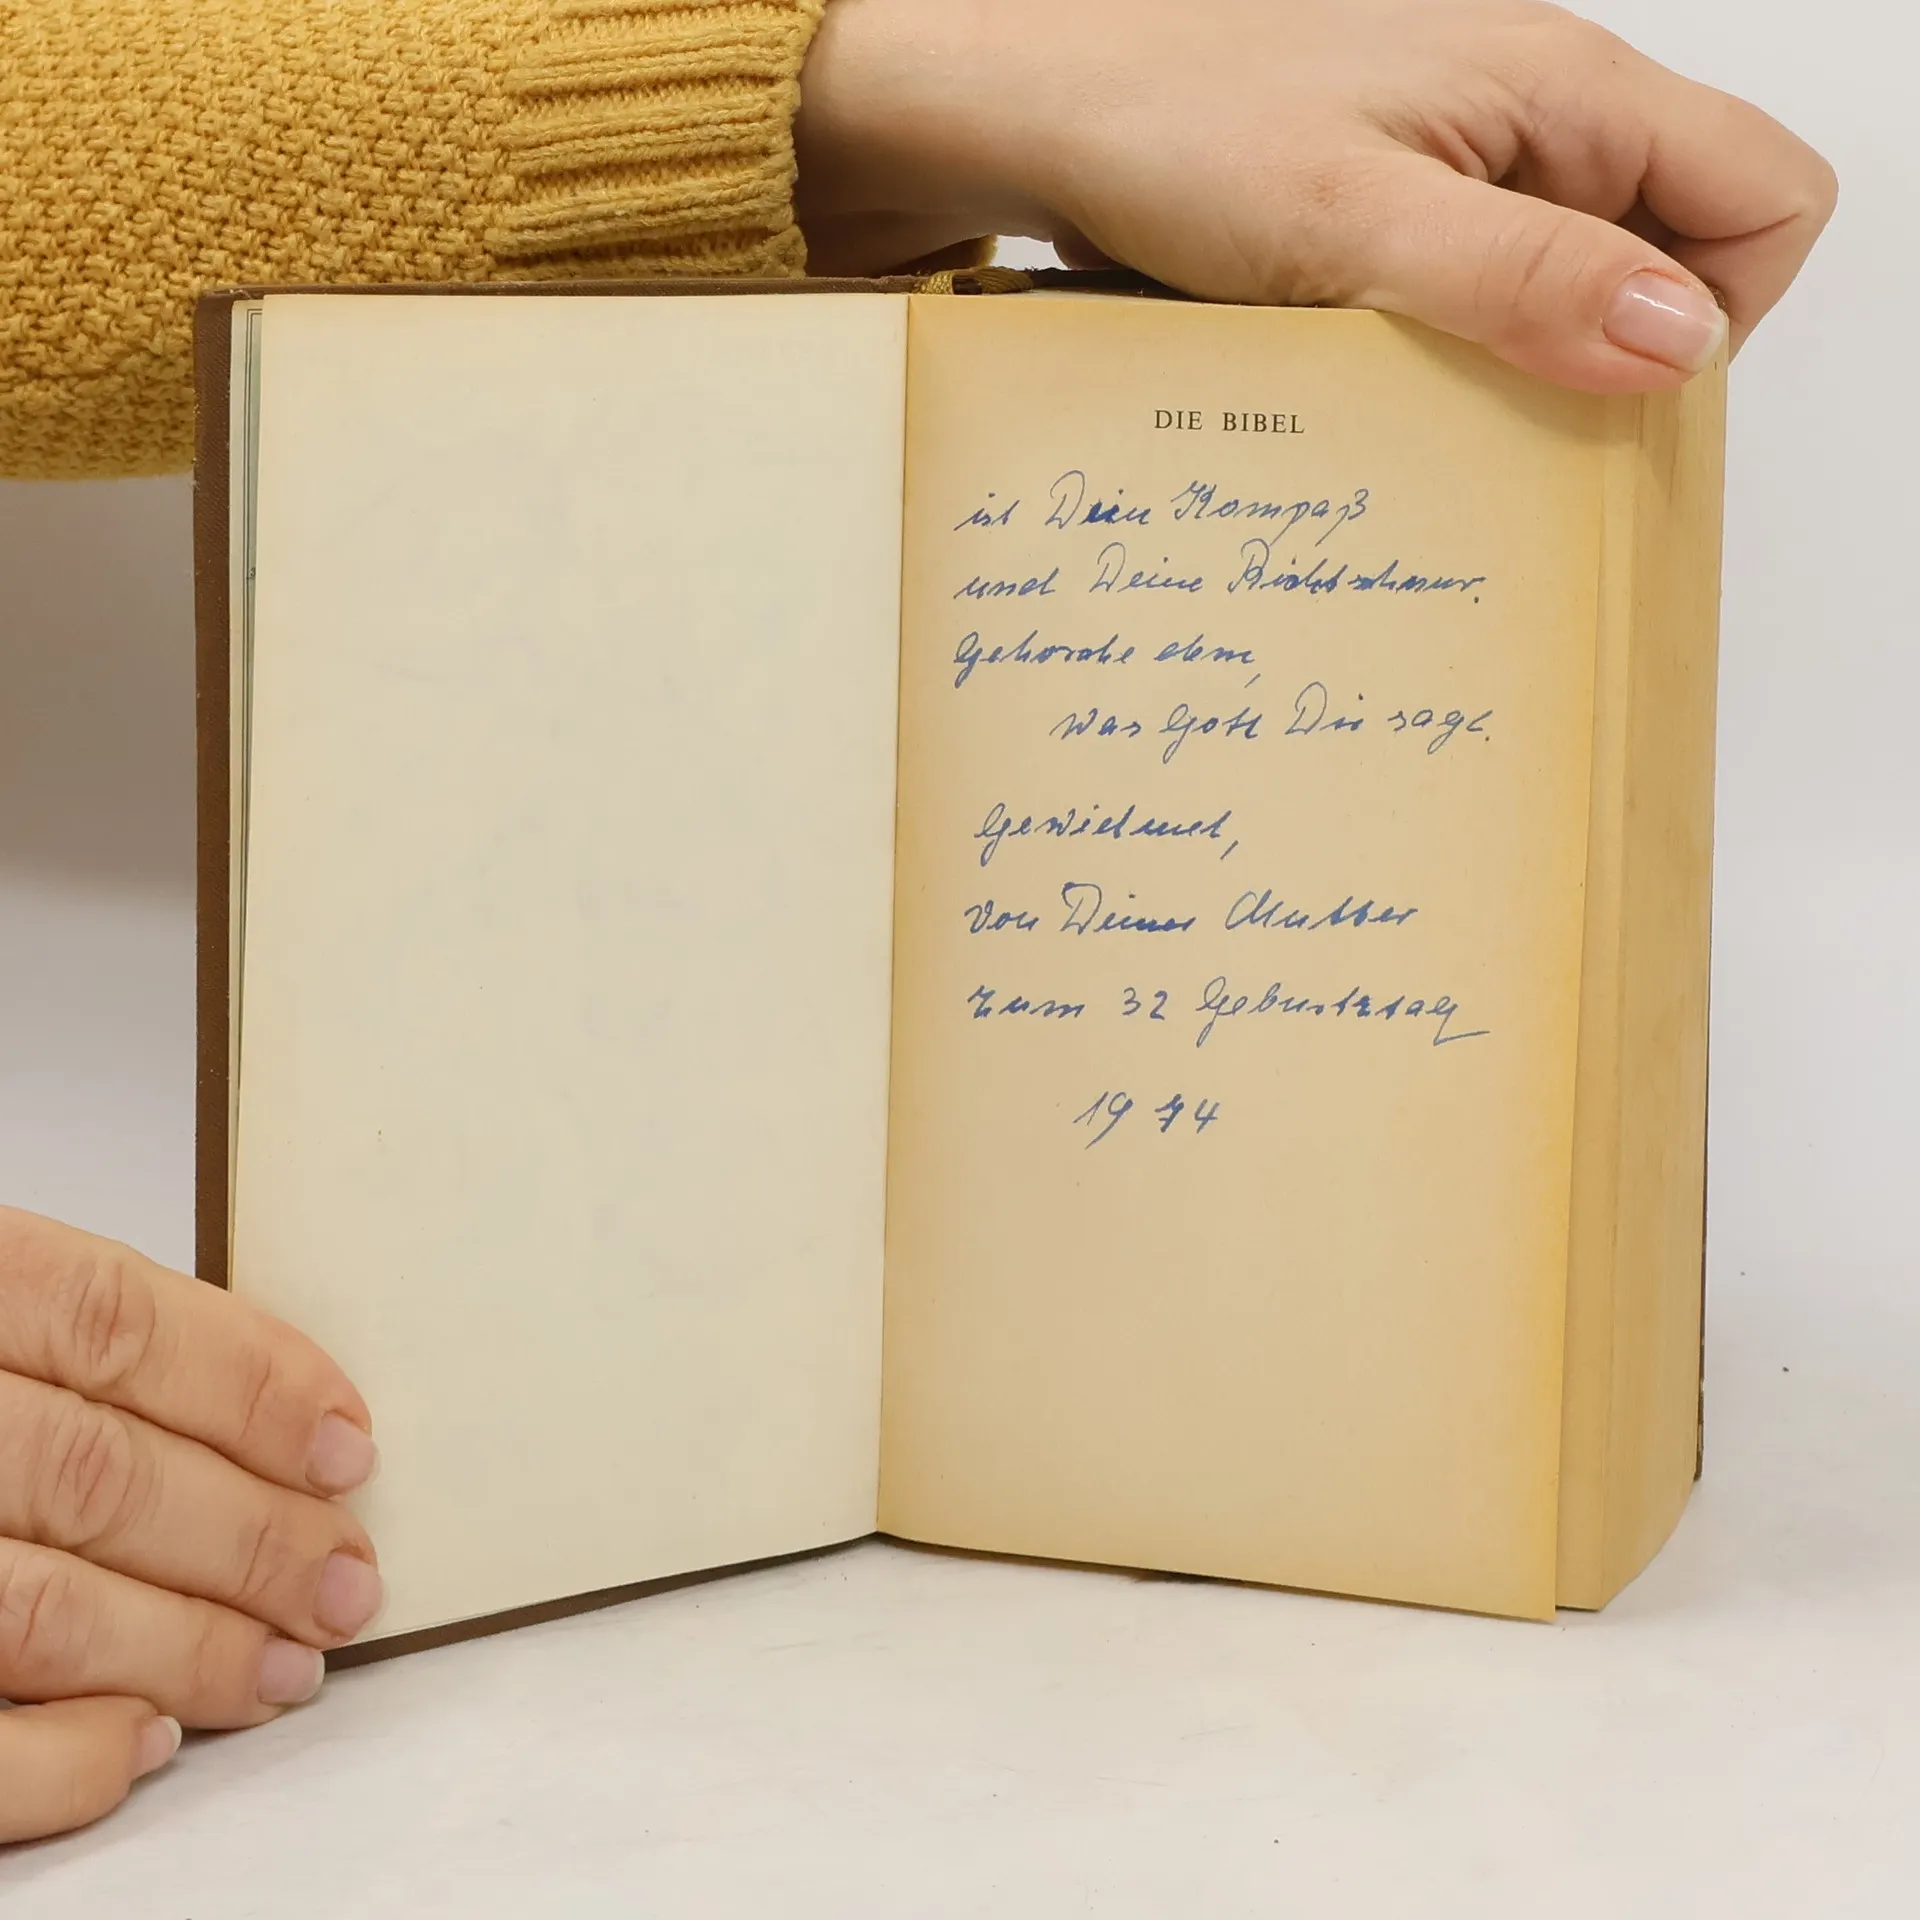 DIE BIBEL
ist Dein Kompaß
und Deine Richtschnur.
Gehorche dem,
was Gott Dir sagt.
Gewidmet,
von Deiner Mutter
zum 32 Geburtstag
1974